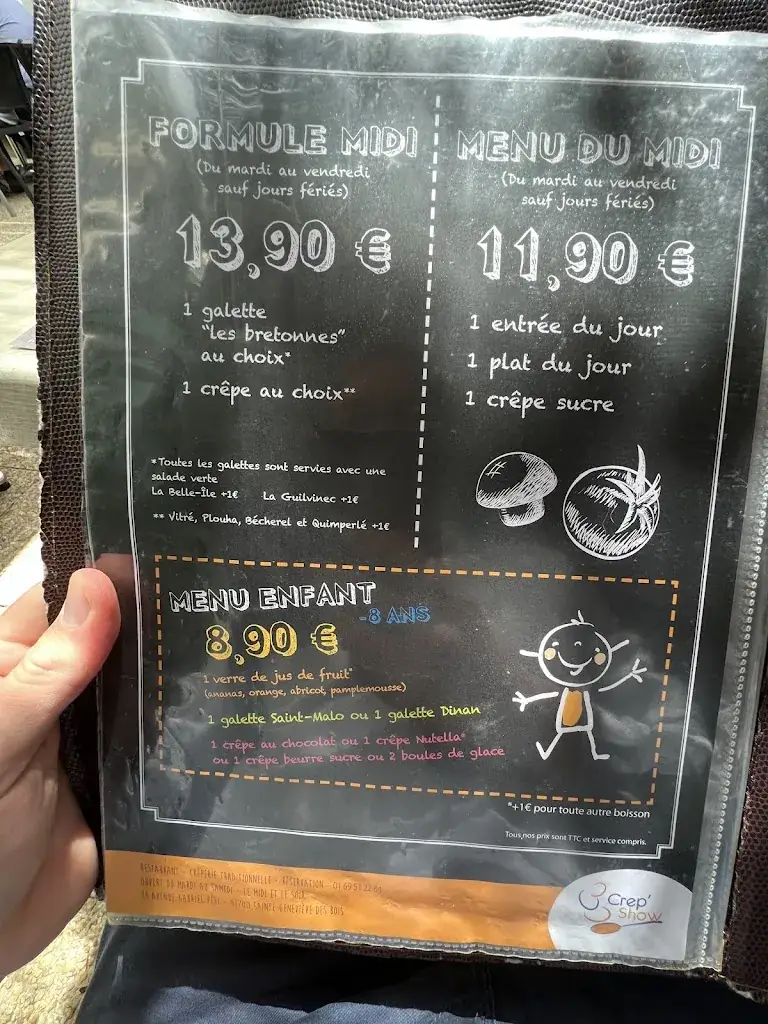 FORMULE MIDI
(Du mardi au vendredi
sauf jours fériés)
13,90 €
1 galette
"les bretonnes"
au choix*
1 crêpe au choix**
*Toutes les galettes sont servies avec une
salade verte
La Belle-Île +1€ La Guilvinec +1€
** Vitré, Plouha, Bécherel et Quimperlé +1€
MENU DU MIDI
(Du mardi au vendredi
sauf jours fériés)
11,90 €
1 entrée du jour
1 plat du jour
1 crêpe sucre
MENU ENFANT
-8 ANS
8,90 €
1 verre de jus de fruit*
(ananas, orange, abricot, pamplemousse)
1 galette Saint-Malo ou 1 galette Dinan
1 crêpe au chocolat ou 1 crêpe Nutella®
ou 1 crêpe beurre sucre ou 2 boules de glace
*+1€ pour toute autre boisson
Tous nos prix sont TTC et service compris.
RESTAURANT - CRÊPERIE TRADITIONNELLE - RÉSERVATION - 01 69 51 22 81
OUVERT DU MARDI AU SAMEDI - LE MIDI ET LE SOIR
AVENUE GABRIEL PÉRI - 91700 SAINTE GENEVIÈVE DES BOIS
Crep'
Show